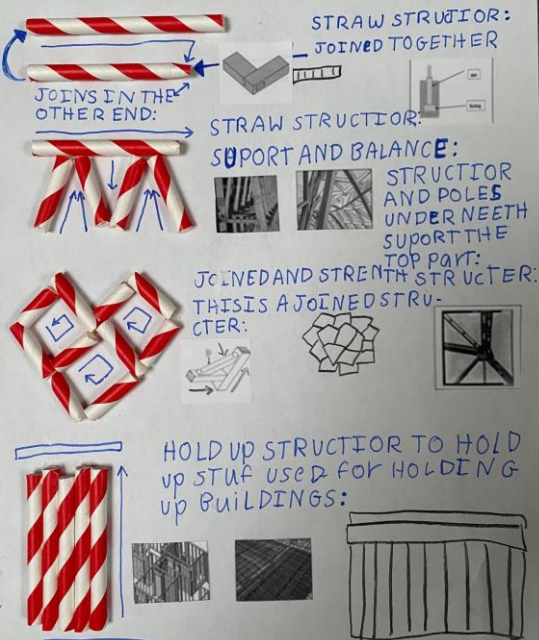 STRAW STRUJIOR:
JOINED TOGETHER
JOINS IN THE
OTHER END:
STRAW STRUCTIOR:
SUPORT AND BALANCE:
STRUCTIOR
AND POLES
UNDER NEETH
SUPORT THE
TOP PART:
JOINED AND STRENTH STRUCTER:
THIS IS A JOINED STRU-
CTER:
HOLD UP STRUCTIOR TO HOLD
up STUF USED FOR HOLDING
up BUILDINGS: